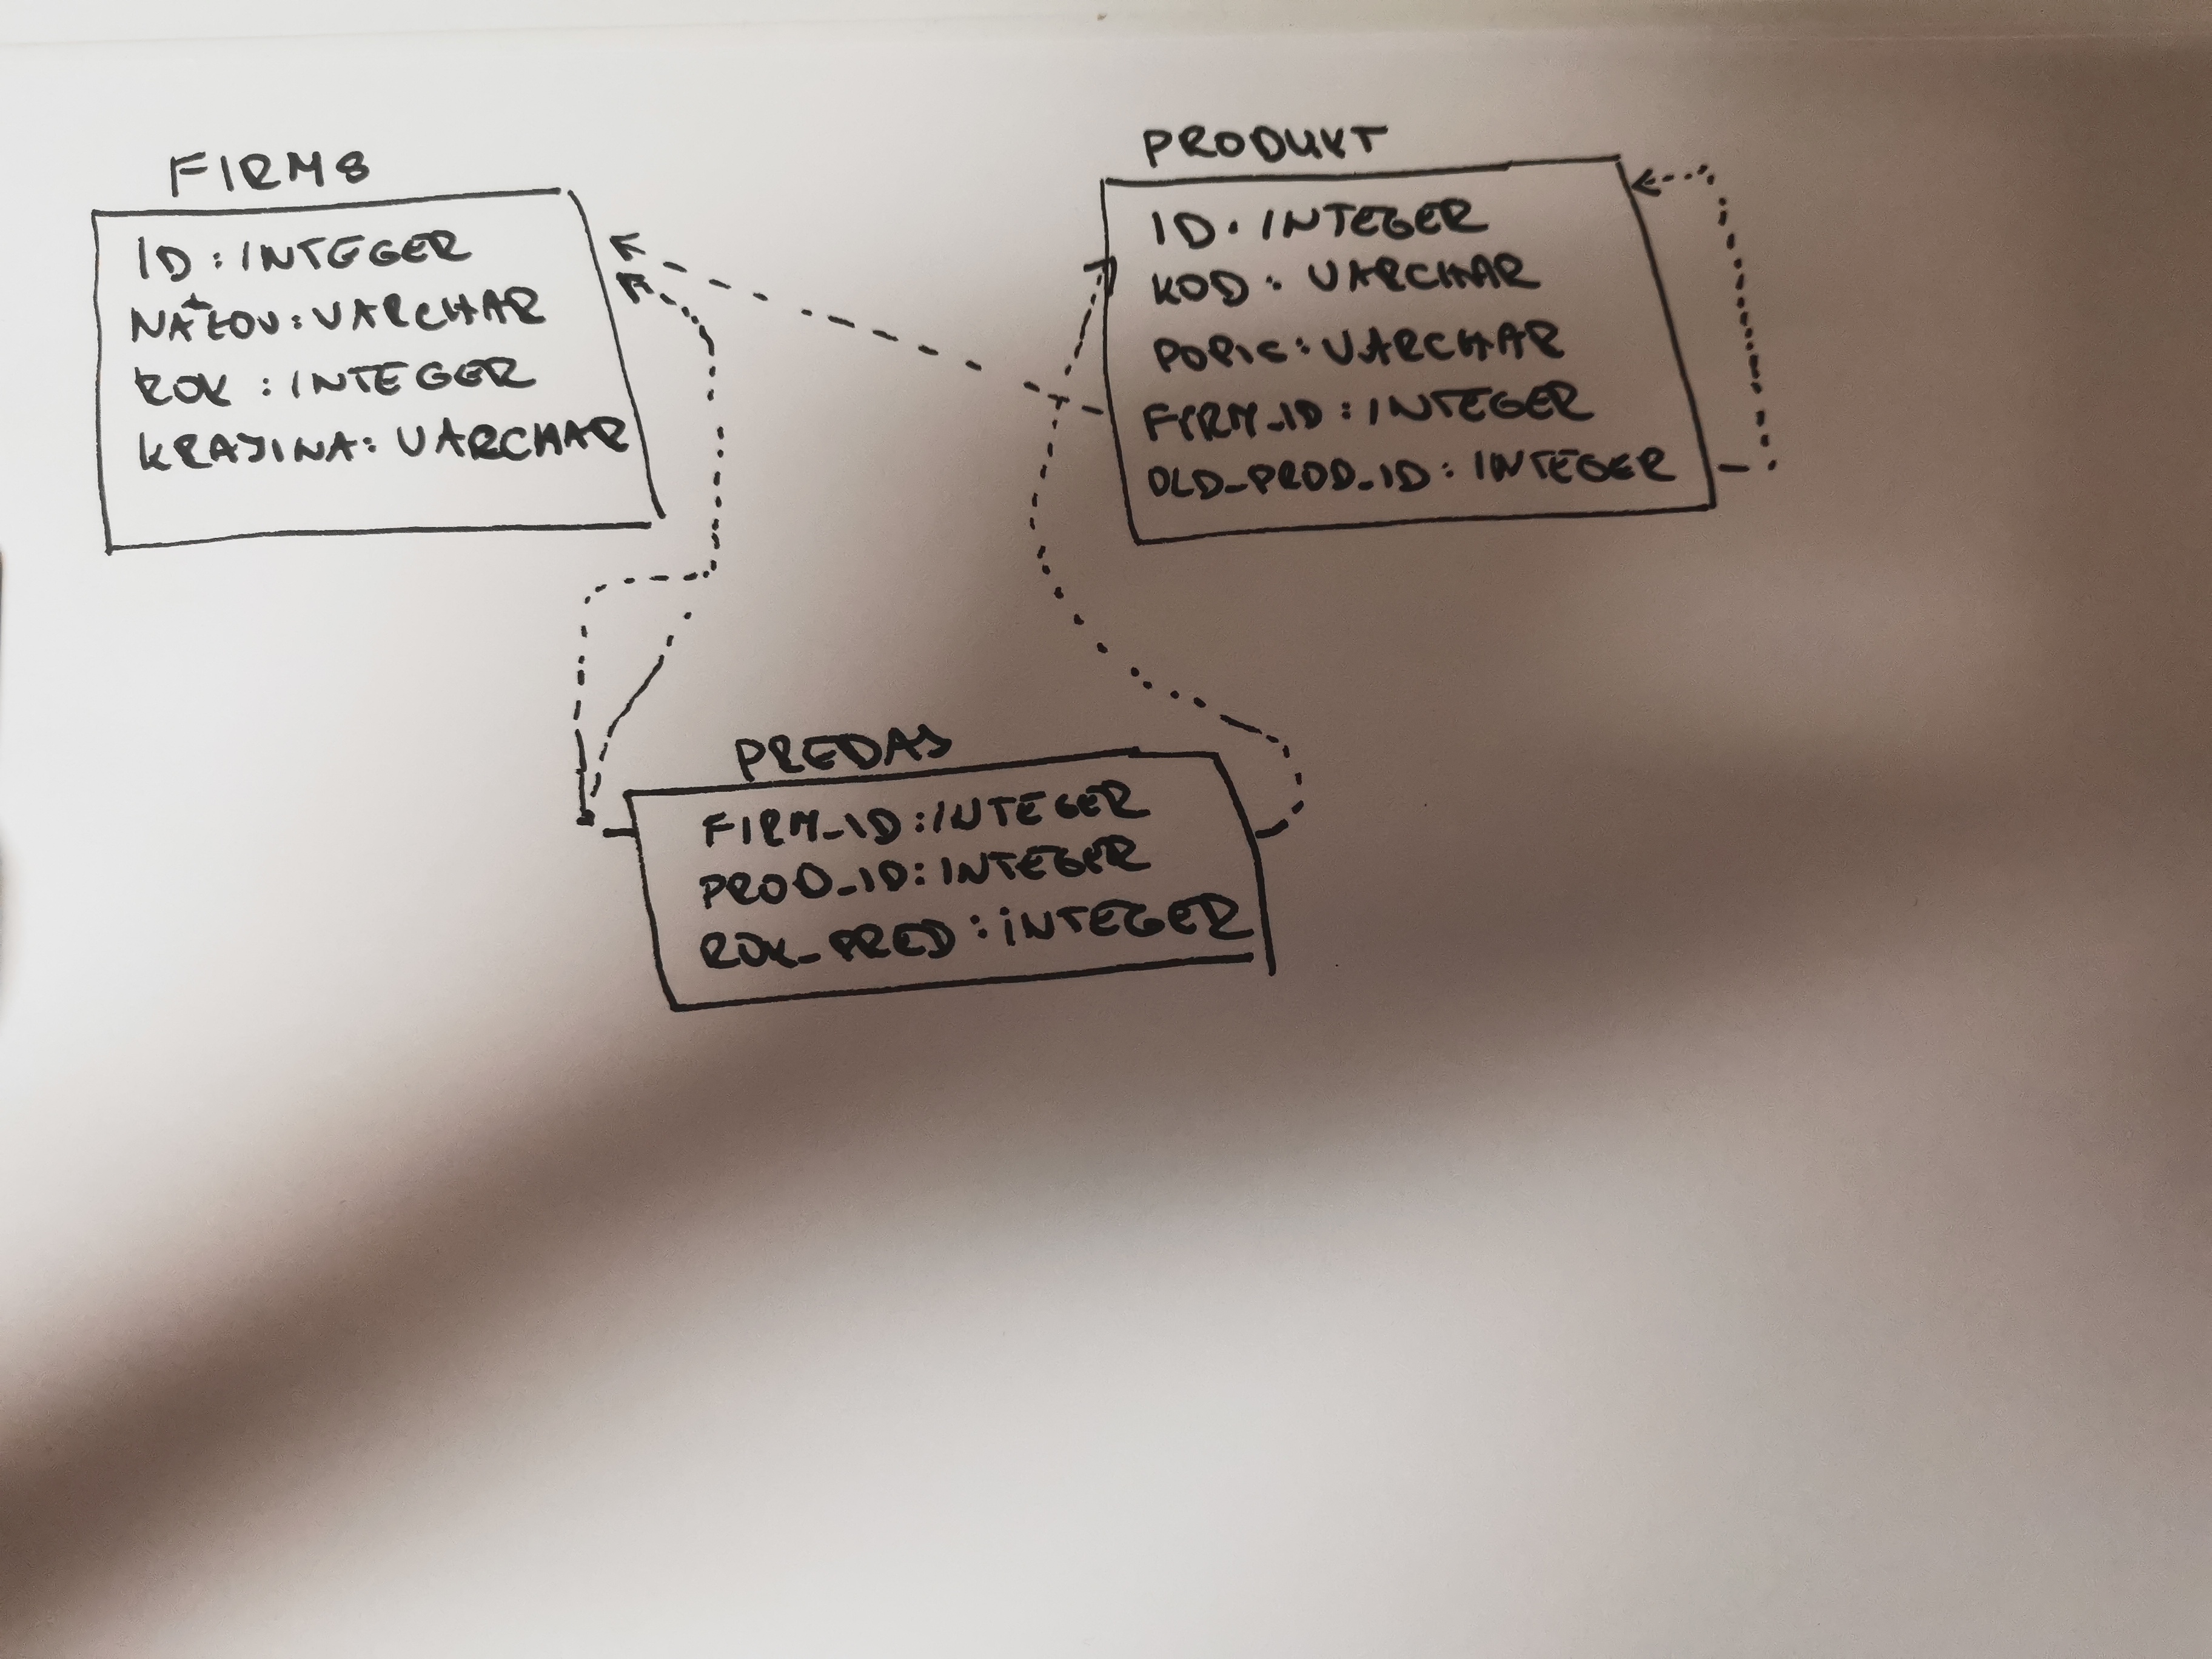 FIRMA
ID: INTEGER
NÁZOV: VARCHAR
ROK: INTEGER
KRAJINA: VARCHAR
PRODUKT
ID: INTEGER
KOD: VARCHAR
POPIS: VARCHAR
FIRM_ID: INTEGER
OLD_PROD_ID: INTEGER
PREDAJ
FIRM_ID: INTEGER
PROD_ID: INTEGER
ROK_PRED: INTEGER